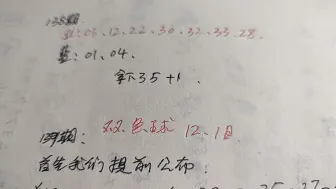 138期
红:03、12、22、30、32、33、28.
蓝:01、04.
拿下35+1.
139期: 双色球 12.1日
首先我们提前公布: